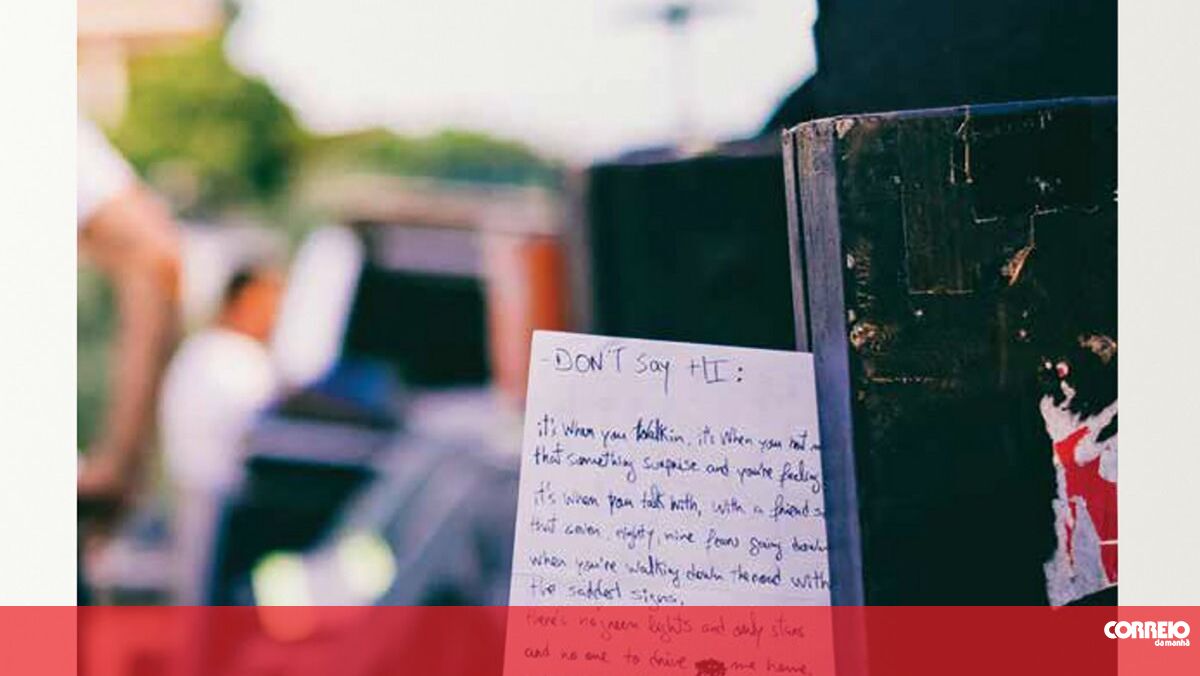 -DON'T say HI:
it's when you walkin, it's when you
that something surprise and you're feeling
it's when you talk with, with a friend
that seven, eighty, nine fears going down
when you're walking down the road with
the saddest signs,
there's no green lights and only stars
and no one to drive me home.
CORREIO
da manhã